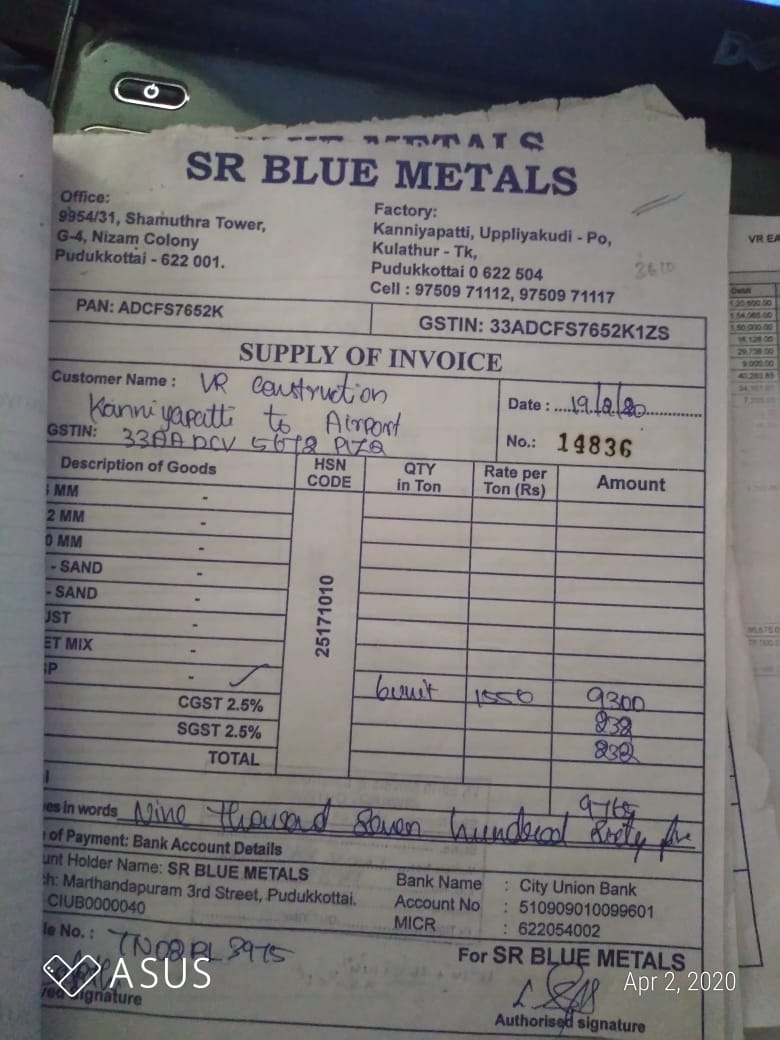 SR BLUE METALS
Office:
9954/31, Shamuthra Tower,
G-4, Nizam Colony
Pudukkottai - 622 001.
Factory:
Kanniyapatti, Uppliyakudi - Po,
Kulathur - Tk,
Pudukkottai 0 622 504
Cell : 97509 71112, 97509 71117
3610
PAN: ADCFS7652K
GSTIN: 33ADCFS7652K1ZS
SUPPLY OF INVOICE
Customer Name : VR construction
Kanniyapatti to Airport
GSTIN: 33AADCV
Date : 19/2/20
No.: 14836
Description of Goods HSN CODE QTY in Ton Rate per Ton (Rs) Amount
MM -
2 MM -
0 MM -
- SAND -
- SAND -
UST -
ET MIX -
25171010
P - 6unit 1550 9300
CGST 2.5% 232
SGST 2.5% 232
TOTAL
9765
es in words Nine thousand Seven hundred Sixty five
of Payment: Bank Account Details
unt Holder Name: SR BLUE METALS
ch: Marthandapuram 3rd Street, Pudukkottai.
CIUB0000040
Bank Name : City Union Bank
Account No : 510909010099601
MICR : 622054002
le No. : TN02BL3975
For SR BLUE METALS
ved Signature
Authorised signature
ASUS
Apr 2, 2020
VR EA
Debit
1,20,600.00
1,54,066.00
1,50,000.00
18,128.00
29,738.00
9,000.00